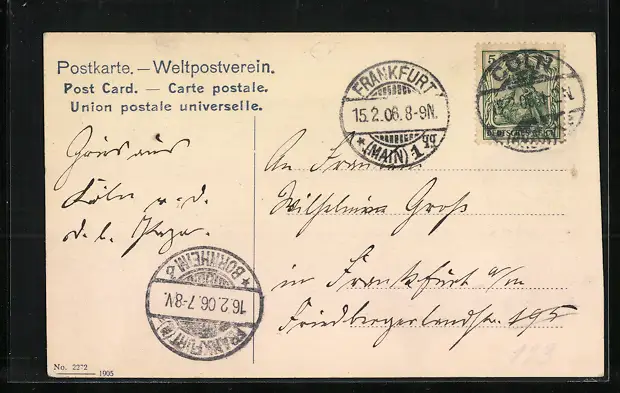 Postkarte. — Weltpostverein.
Post Card. — Carte postale.
Union postale universelle.
FRANKFURT
15.2.06.8-9N.
* (MAIN) 1
CÖLN
DEUTSCHES REICH
Gruss aus
Köln
d. l.
An Frau
Wilhelmine Groß
in Frankfurt a/m
Friedbergerlandstr. 195
FRANKFURT
16.2.06.7-8V.
* BORNHEIM
No. 2272
1905